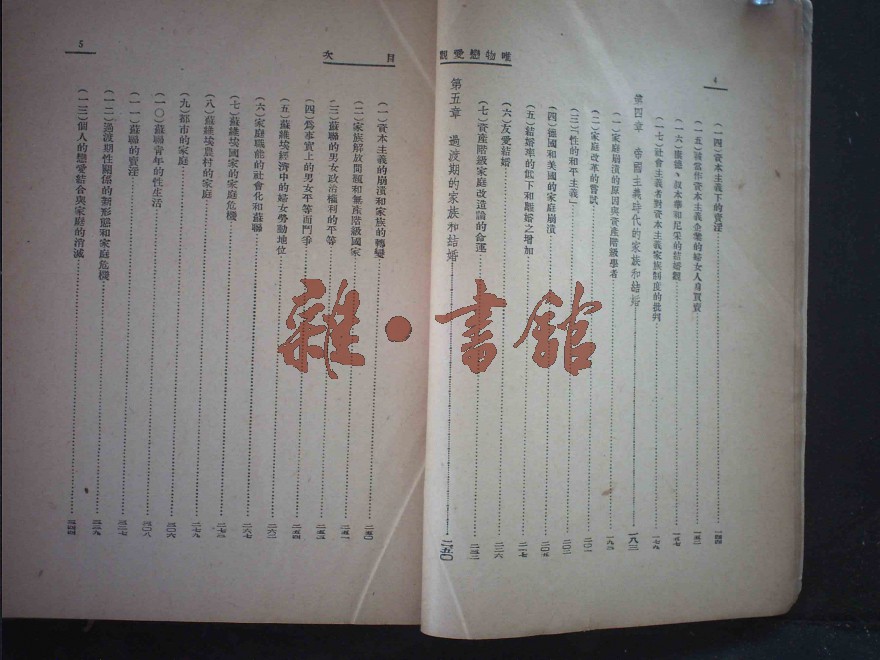 4
唯物戀愛觀
(一四)資本主義下的賣淫
(一五)論當作資本主義企業的婦女人身買賣
(一六)康德、叔本華和尼采的結婚觀
(一七)社會主義者對資本主義家族制度的批判 一七九
第四章 帝國主義時代的家族和結婚 一八三
(一)家庭崩潰的原因與資產階級學者
(二)家庭改革的嘗試 二〇一
(三)「性的和平主義」 二〇二
(四)德國和美國的家庭崩潰 二〇五
(五)結婚率的低下和離婚之增加 二一七
(六)友愛結婚 二二六
(七)資產階級家庭改造論的命運
第五章 過渡期的家族和結婚 二五〇
目次
5
(一)資本主義的崩潰和家族的轉變 二五〇
(二)家族解放問題和無產階級國家 二五一
(三)蘇聯的男女政治權利的平等
(四)爲事實上的男女平等而鬥爭 二五四
(五)蘇維埃經濟中的婦女勞動地位 二六二
(六)家庭職能的社會化和蘇聯 二六七
(七)蘇維埃國家的家庭危機
(八)蘇維埃農村的家庭 二七九
(九)都市的家庭 三〇六
(一〇)蘇聯青年的性生活 三〇八
(一一)蘇聯的賣淫 三二七
(一二)過渡期性關係的新形態和家庭危機 三三九
(一三)個人的戀愛結合與家庭的消滅 三四四
雜·書館